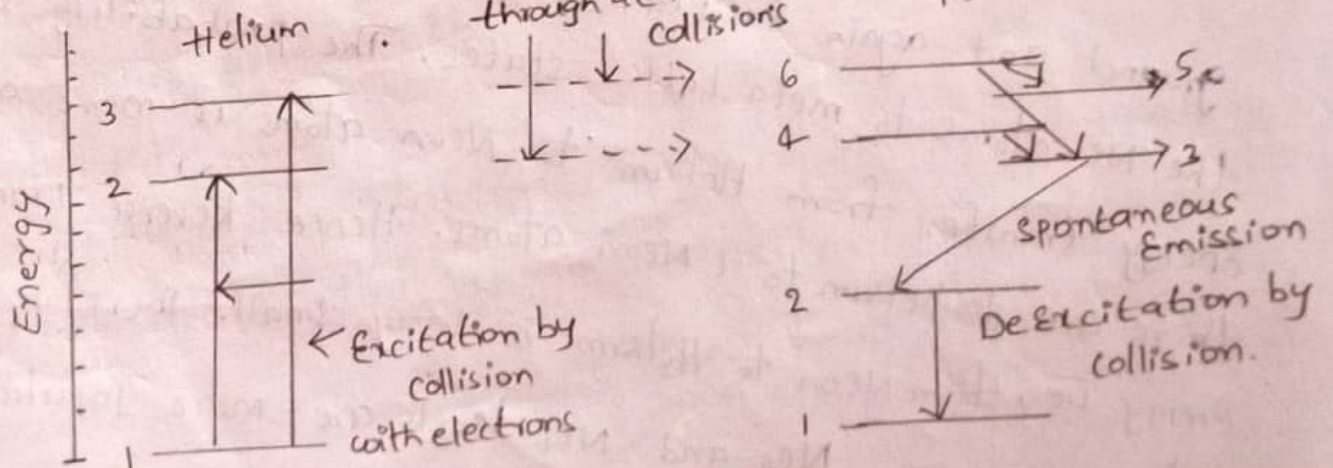 Helium
through
collisions
Energy
3
2
1
Excitation by
collision
with electrons
6
5
4
3
Spontaneous
Emission
2
DeExcitation by
collision.
1